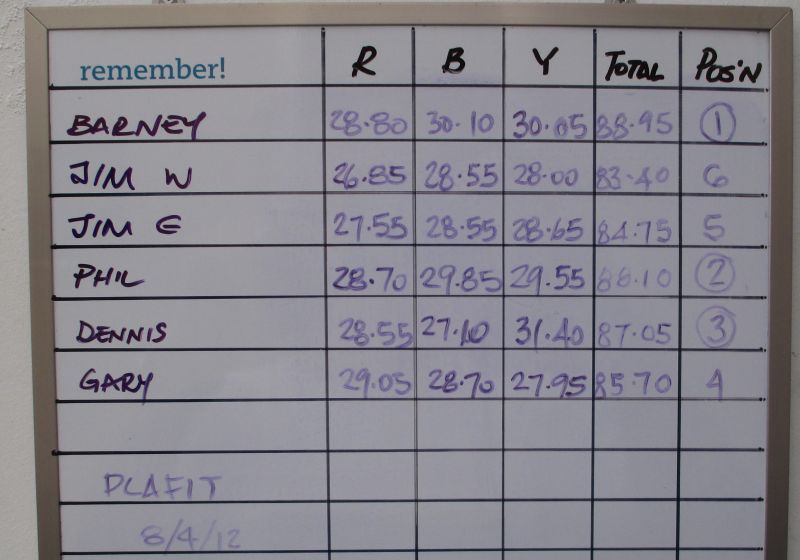 remember! R B Y TOTAL POS'N
BARNEY 28.80 30.10 30.05 88.95 1
JIM W 26.85 28.55 28.00 83.40 6
JIM E 27.55 28.55 28.65 84.75 5
PHIL 28.70 29.85 29.55 88.10 2
DENNIS 28.55 27.10 31.40 87.05 3
GARY 29.05 28.70 27.95 85.70 4
PLAFIT
8/4/12